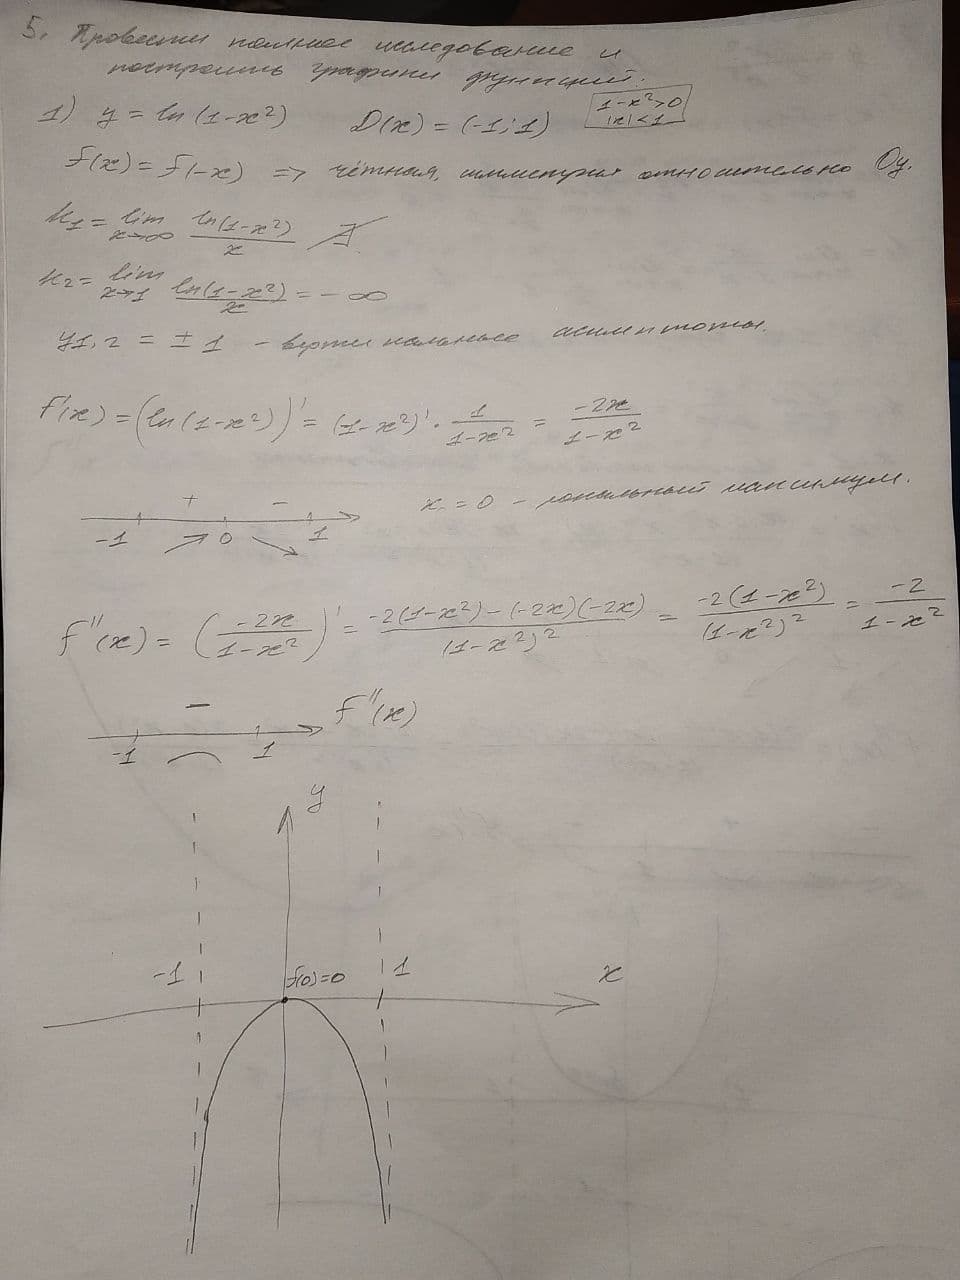 5. Провести полное исследование и
построить графики функций.
1) y = ln (1-x²) D(x) = (-1; 1) 1-x²>0
|x|<1
f(x) = f(-x) => чётная, симметрия относительно Oy.
k₁ = lim x→∞ ln(1-x²)/x ∄
k₂ = lim x→1 ln(1-x²)/x = -∞
y1,2 = ± 1 - вертикальные асимптоты.
f'(x) = (ln(1-x²))' = (1-x²)' · 1/(1-x²) = -2x/(1-x²)
+ - x = 0 - локальный максимум.
-1 0 1
f''(x) = (-2x/(1-x²))' = (-2(1-x²)-(-2x)(-2x))/(1-x²)² = -2(1-x²)/(1-x²)² = -2/(1-x²)
- f''(x)
-1 1
y
-1 f(0)=0 1 x